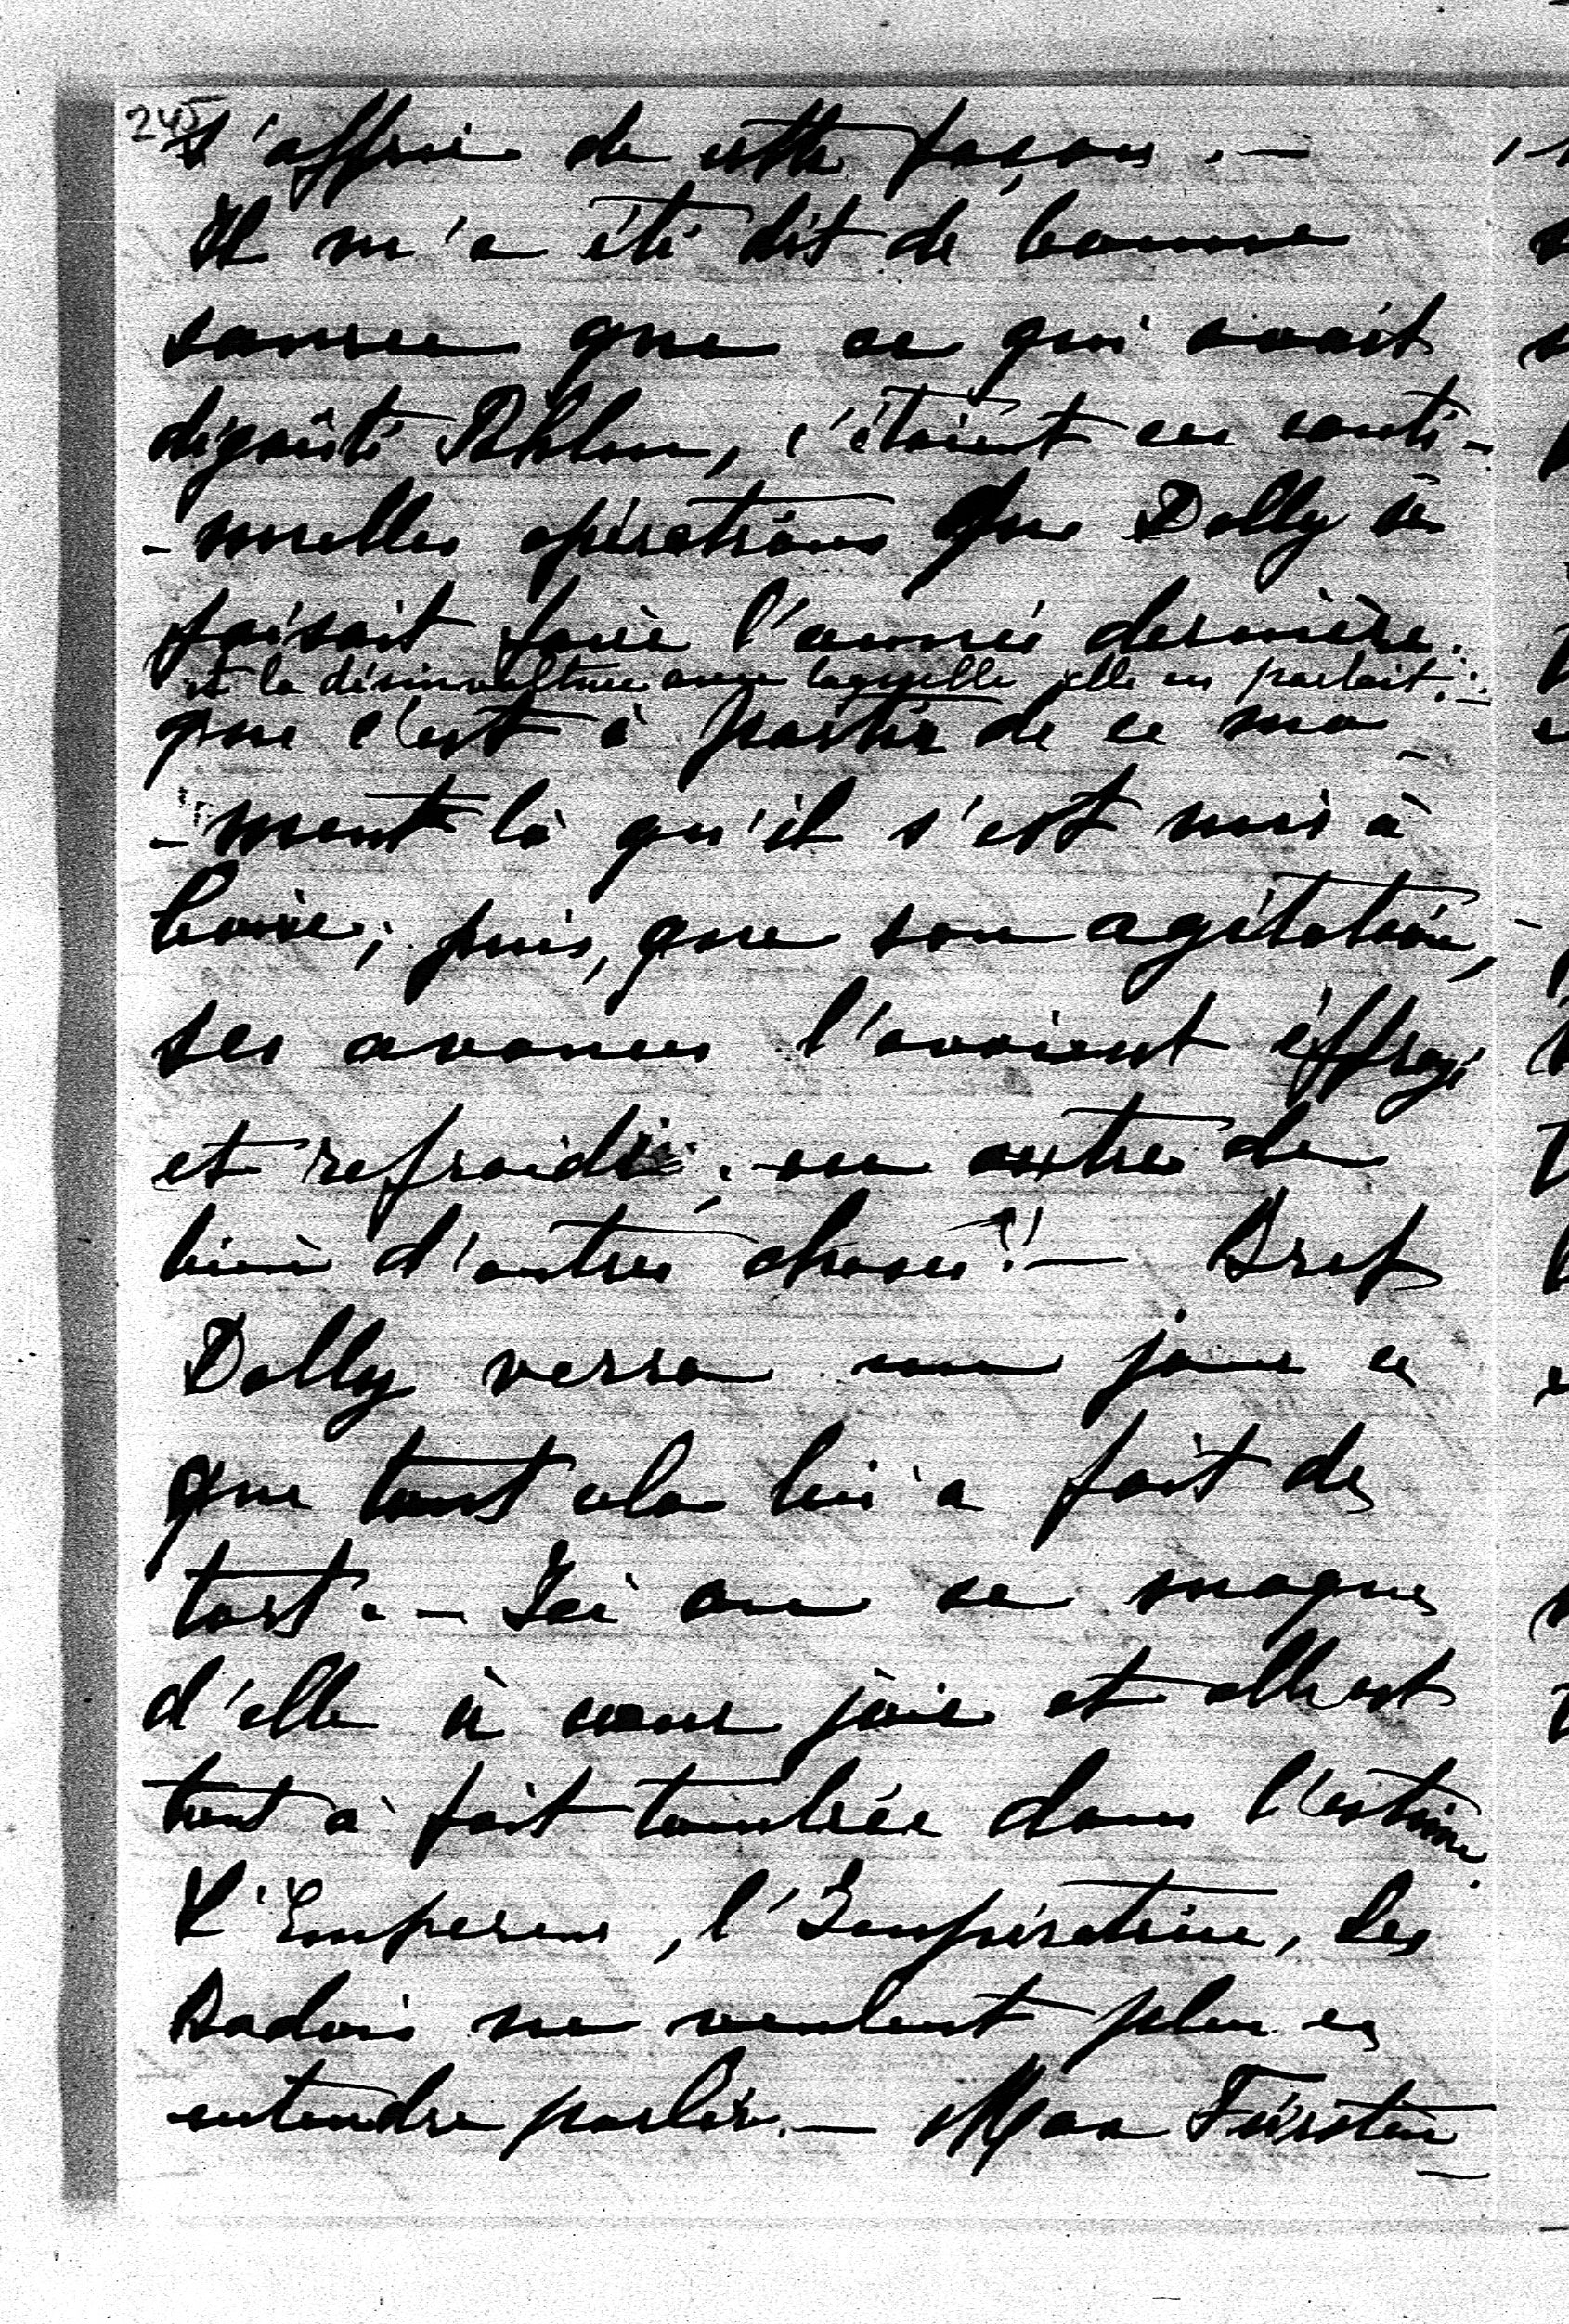 245
s'offrir de cette façon. —
Il m'a été dit de bonne
source que ce qui avait
dégoûté Pohlen, c'étaient ces conti-
-nuelles opérations que Dolly se
faisait faire l'année dernière.
et la désinvolture avec laquelle elle en parlait. :
que c'est à partir de ce mo-
-ment là qu'il s'est mis à
boire; puis, que son agitation,
ses avances l'avaient éffrayé
et refroidi; en outre de
bien d'autres choses! — Bref
Dolly verra un jour ce
que tout cela lui a fait de
tort. — Ici on se moque
d'elle à cœur joie et elle est
tout à fait tombée dans l'estime.
L'Empereur, l'Impératrice, les
Badois ne veulent plus en
entendre parler. — Max Fürsten-